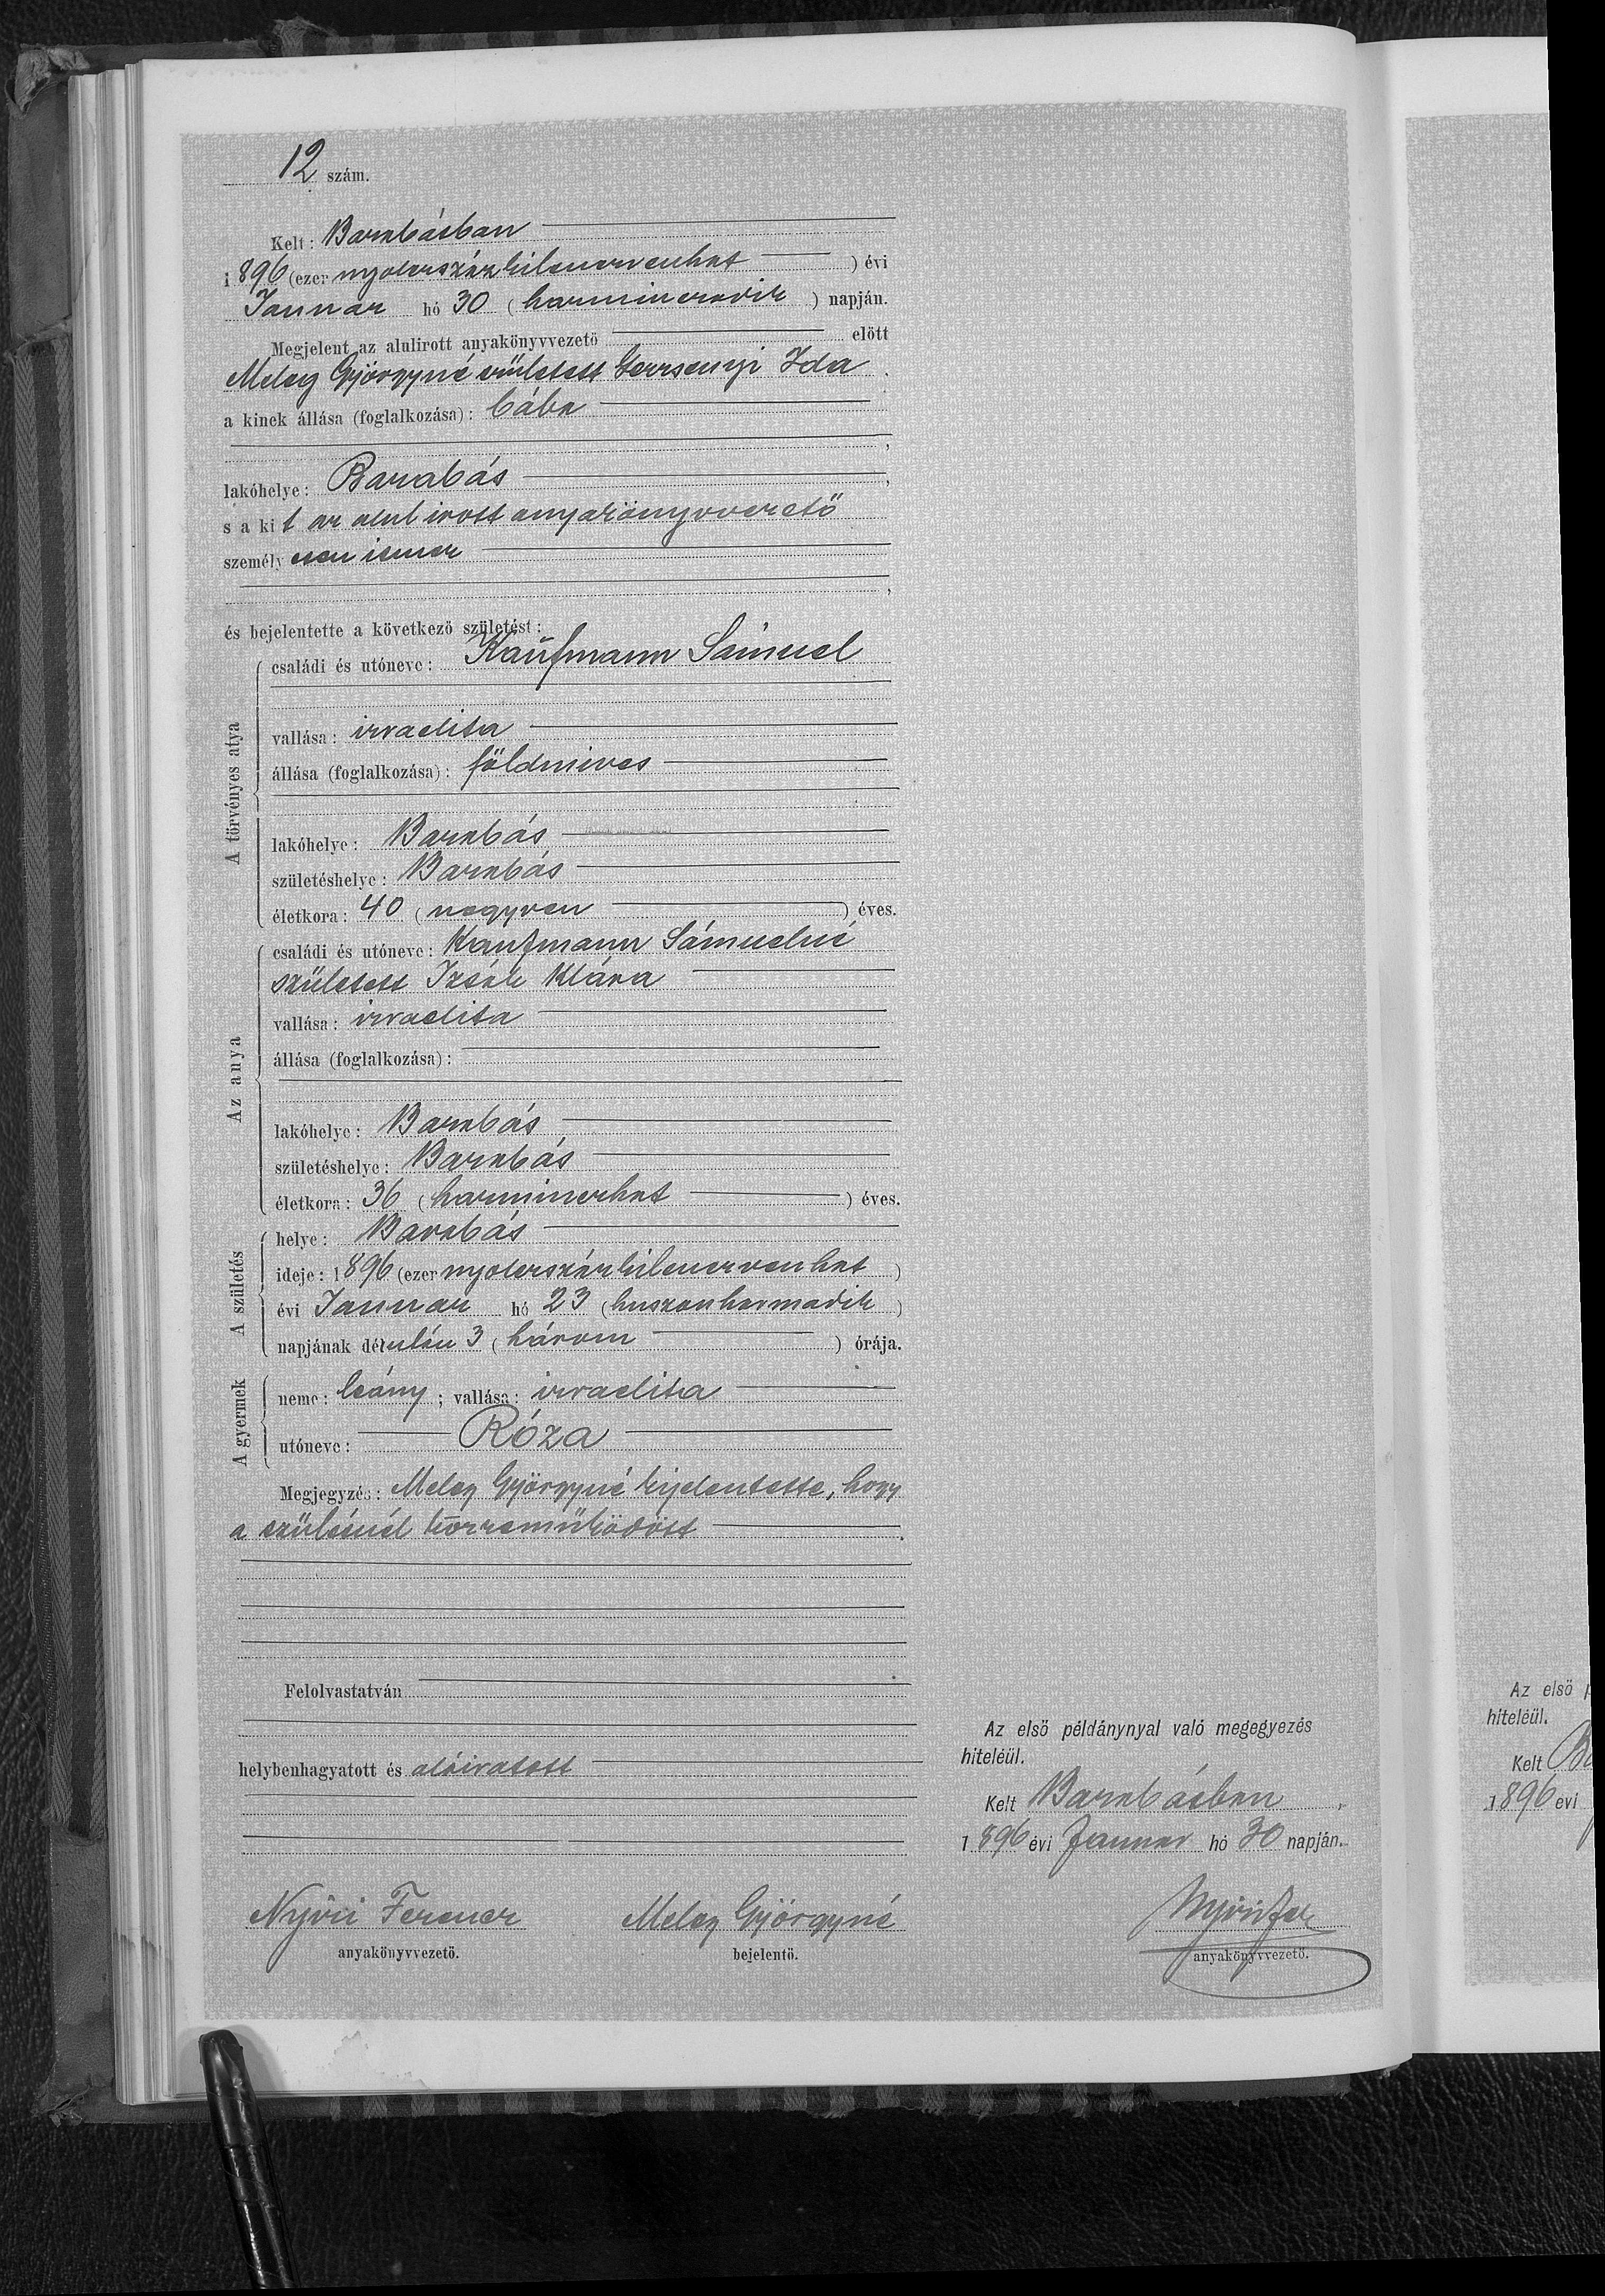 12 szám.
Kelt: Barabásban
1896 (ezer nyolczszázkilenczvenhat) évi
Januar hó 30 (harminczadik) napján.
Megjelent az alulirott anyakönyvvezető előtt
Meleg Györgyné született Ida
a kinek állása (foglalkozása): bába
,
lakóhelye: Barabás ,
s a kit az alulirott anyakönyvvezető
személyesen ismer
,
és bejelentette a következő születést:
A törvényes atya
családi és utóneve: Kaufmann Sámuel
vallása: izraelita
állása (foglalkozása): földmíves
lakóhelye: Barabás
születéshelye: Barabás
életkora: 40 (negyven) éves.
Az anya
családi és utóneve: Kaufmann Sámuelné
született Izsák Klára
vallása: izraelita
állása (foglalkozása):
lakóhelye: Barabás
születéshelye: Barabás
életkora: 36 (harminczhat) éves.
A születés
helye: Barabás
ideje: 1896 (ezer nyolczszázkilenczvenhat)
évi Januar hó 23 (huszonharmadik)
napjának délután 3 (három) órája.
A gyermek
neme: leány; vallása: izraelita
utóneve: Róza
Megjegyzés: Meleg Györgyné kijelentette, hogy
a szülésnél közreműködött.
Felolvastatván
helybenhagyatott és aláiratott
Nyiri Ferencz
anyakönyvvezető.
Meleg Györgyné
bejelentő.
Az első példánynyal való megegyezés
hiteléül.
Kelt Barabásban,
1896 évi Januar hó 30 napján.
Nyiri Fer
anyakönyvvezető.
Az első
hiteléül.
Kelt
1896 évi